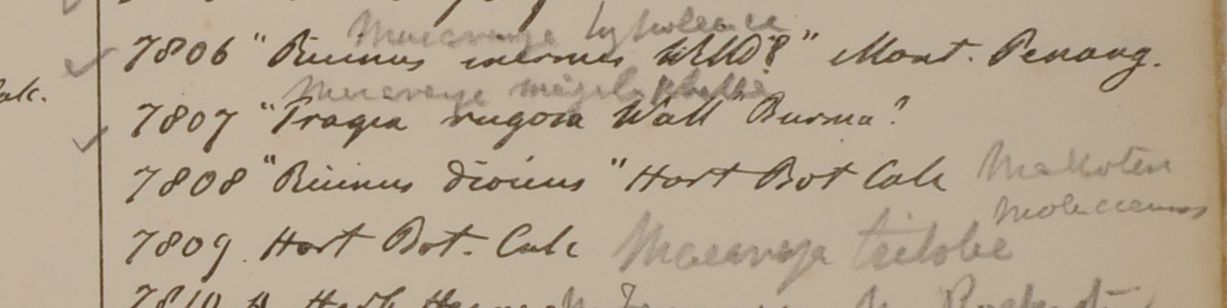 Macaranga hypoleuca
7806 "Ricinus inermis Willd?" Mont. Penang.
Macaranga
7807 "Tragia rugosa Wall Burma?
7808 "Ricinus dioicus" Hort Bot Calc
Malloten
Moluccanus
7809. Hort Bot. Calc Macaranga triloba
7810 H.